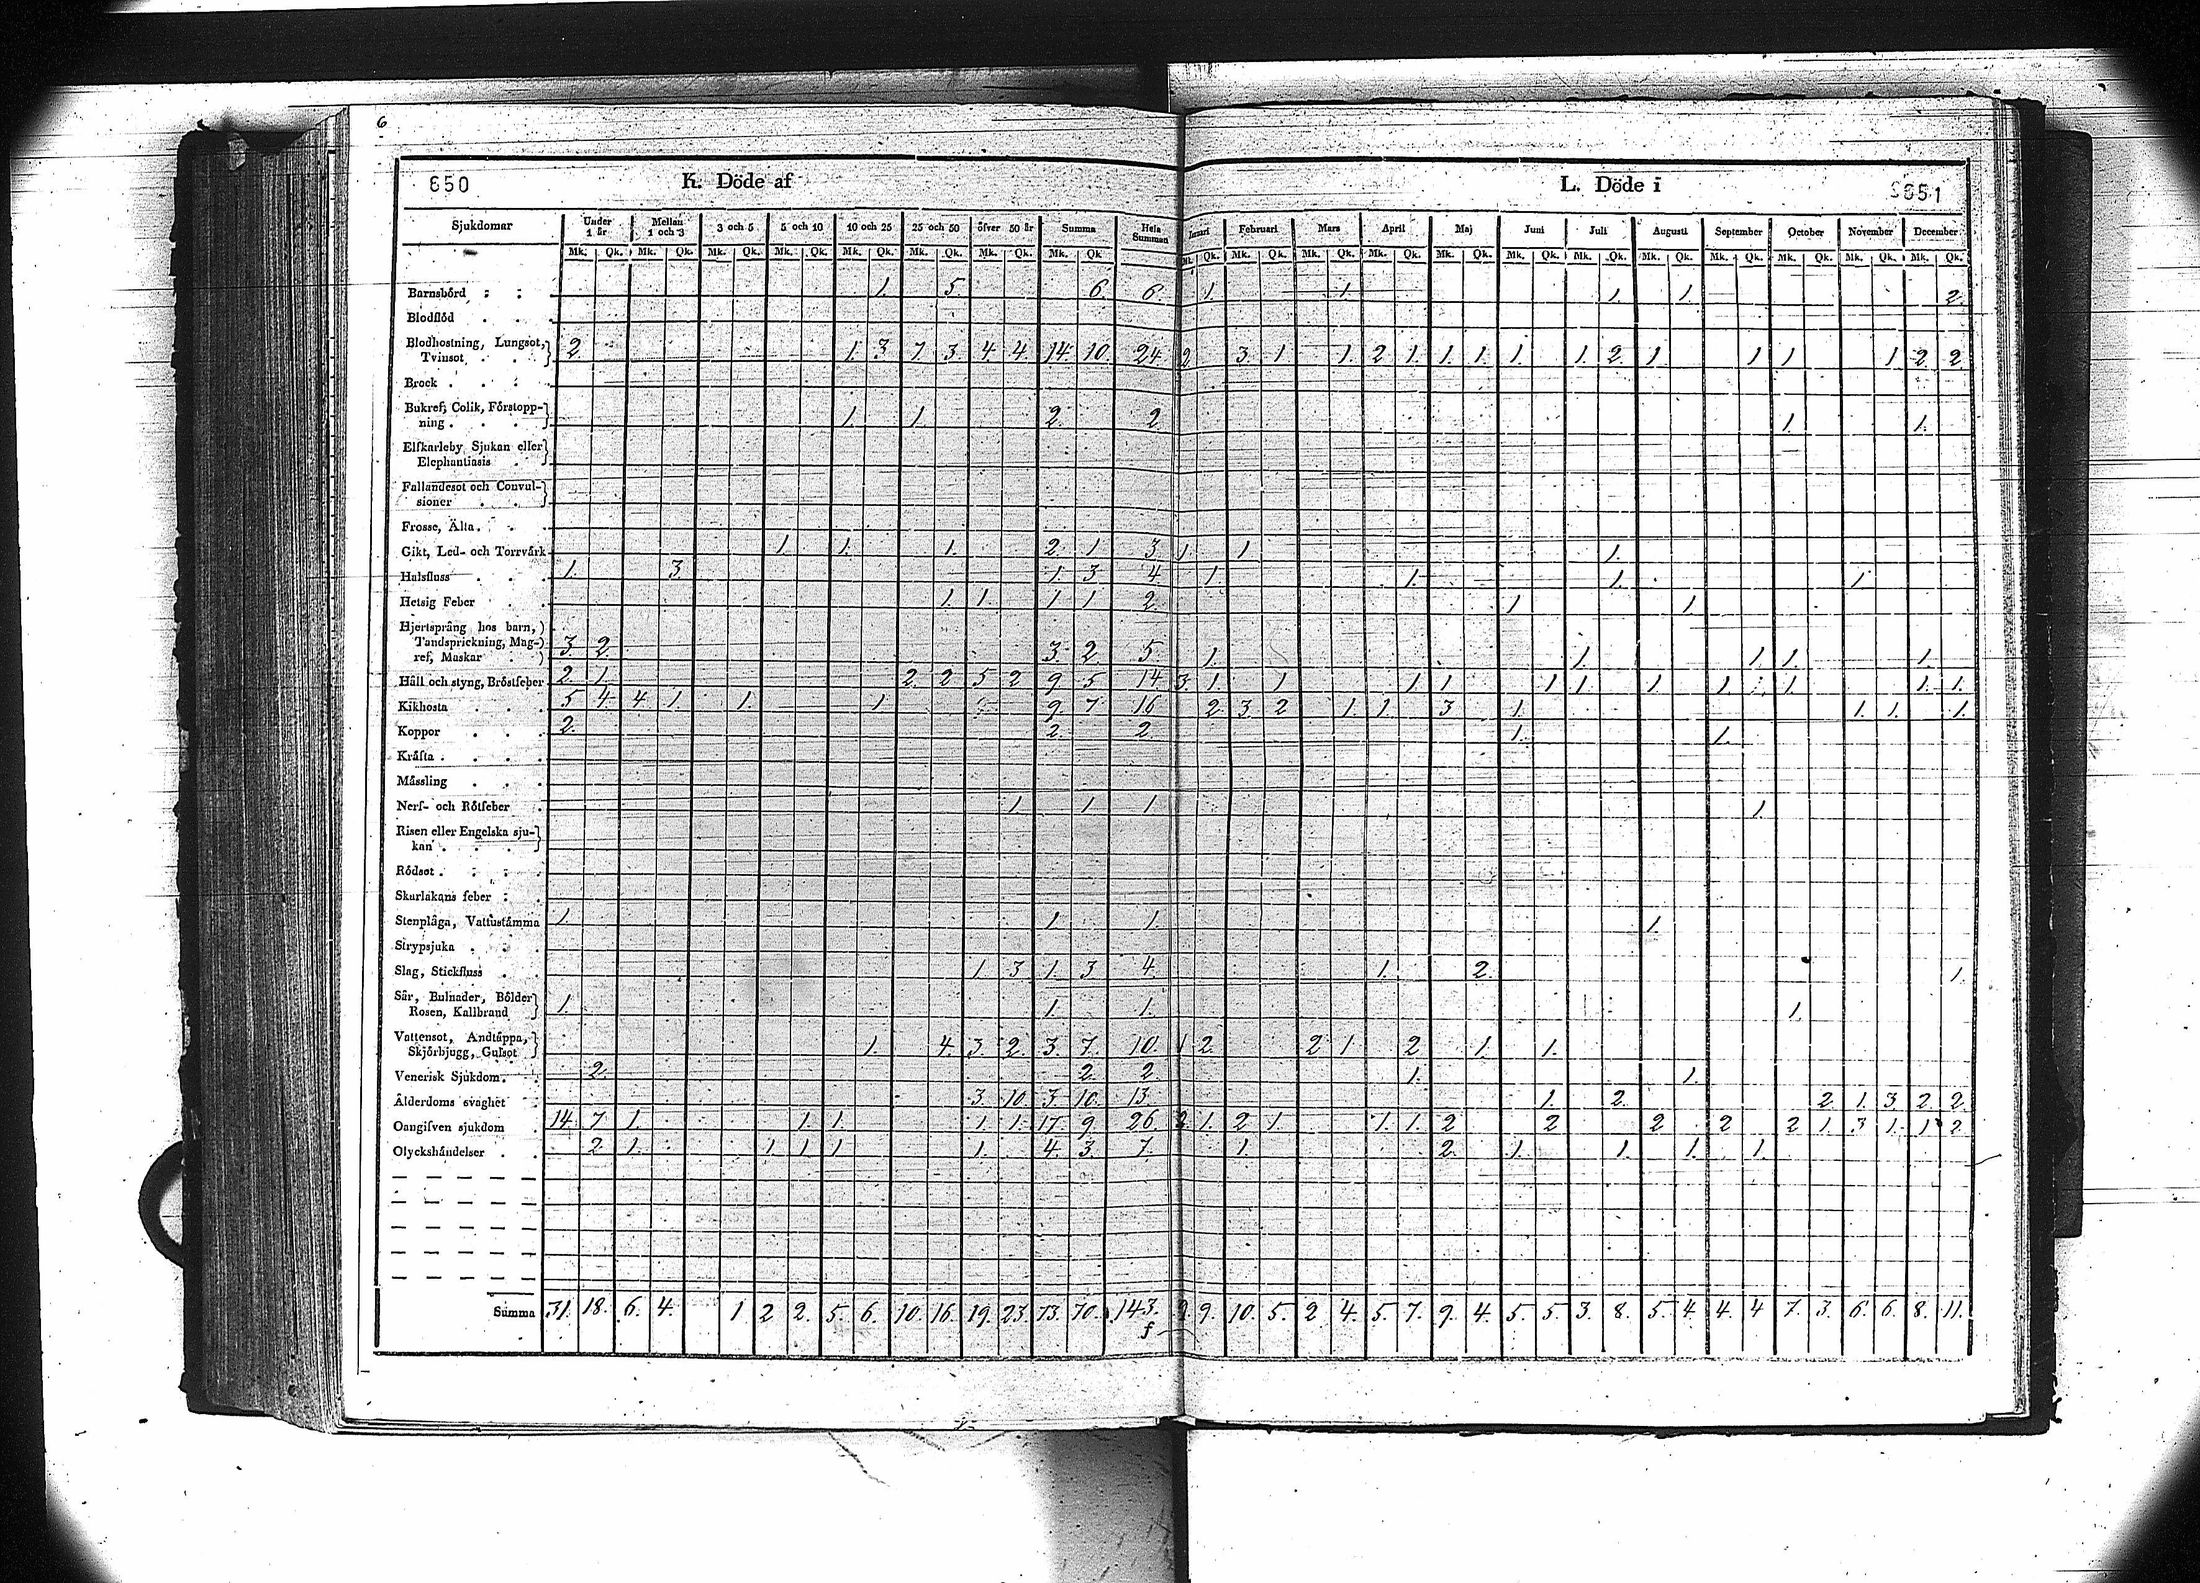 6
650 K. Döde af L. Döde i 651
Sjukdomar Under 1 år Mellan 1 och 3 3 och 5 5 och 10 10 och 25 25 och 50 öfver 50 år Summa Hela Summan Januari Februari Mars April Maj Juni Juli Augusti September October November December
Mk. Qk. Mk. Qk. Mk. Qk. Mk. Qk. Mk. Qk. Mk. Qk. Mk. Qk. Mk. Qk. Mk. Qk. Mk. Qk. Mk. Qk. Mk. Qk. Mk. Qk. Mk. Qk. Mk. Qk. Mk. Qk. Mk. Qk. Mk. Qk. Mk. Qk. Mk. Qk.
Barnsbörd 1. 5. 6. 6. 1. 1. 1. 1. 2.
Blodflöd
Blodhostning, Lungsot,
Tvinsot 2. 1. 3. 7. 3. 4. 4. 14. 10. 24. 2. 3. 1 1. 2 1. 1. 1. 1. 1. 2. 1. 1 1. 1. 2. 2.
Brock
Bukref, Colik, Förstopp-
ning 1. 1. 2. 2. 1. 1.
Elfkarleby Sjukan eller
Elephantiasis
Fallandesot och Convul-
sioner
Frosse, Älta
Gikt, Led- och Torrvärk 1. 1. 1. 2. 1. 3. 1. 1. 1.
Halsfluss 1. 3. 1. 3. 4. 1. 1. 1. 1.
Hetsig Feber 1. 1. 1. 1. 2. 1. 1.
Hjertsprång hos barn,
Tandsprickning, Mag-
ref, Maskar 3. 2. 3. 2. 5. 1. 1. 1. 1. 1.
Håll och styng, Bröstfeber 2. 1. 2. 2. 5. 2. 9. 5. 14 3. 1. 1. 1. 1. 1. 1. 1. 1. 1. 1. 1.
Kikhosta 5 4. 4. 1. 1. 1. 9. 7. 16 2. 3. 2. 1. 1. 3. 1. 1. 1. 1.
Koppor 2. 2. 2. 1. 1.
Kräfta
Mässling
Nerf- och Rötfeber 1. 1. 1. 1.
Risen eller Engelska sju-
kan
Rödsot
Skarlakans feber
Stenplåga, Vattustämma 1. 1. 1. 1.
Strypsjuka
Slag, Stickfluss 1. 3. 1. 3. 4. 1. 2. 1.
Sår, Bulnader, Bölder
Rosen, Kallbrand 1. 1. 1. 1.
Vattensot, Andtäppa,
Skjörbjugg, Gulsot 1. 4. 3. 2. 3. 7. 10 1 2. 2 1. 2 1. 1.
Venerisk Sjukdom 2. 2. 2. 1. 1.
Ålderdoms svaghet 3. 10. 3. 10. 13. 1. 2. 2 1. 3. 2. 2.
Oangifven sjukdom 14. 7. 1. 1. 1. 1. 1. 17. 9. 26. 1. 2. 1. 1. 1. 2 2 2 2 2 1. 3. 1. 1. 2.
Olyckshändelser 2. 1. 1. 1. 1. 1. 4. 3. 7. 1. 2. 1. 1. 1. 1.
Summa 31. 18. 6. 4. 1 2 2. 5. 6. 10. 16. 19. 23. 73. 70. 143. 9. 9. 10. 5. 2 4. 5. 7. 9. 4. 5. 5. 3. 8. 5. 4. 4. 4. 7. 3. 6. 6. 8. 11.